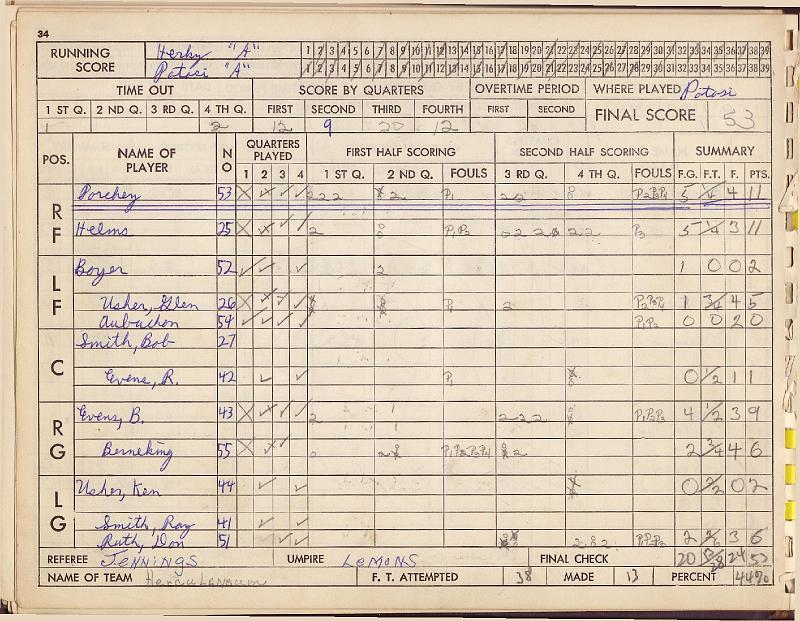 34
RUNNING SCORE Herky "A" 1 2 3 4 5 6 7 8 9 10 11 12 13 14 15 16 17 18 19 20 21 22 23 24 25 26 27 28 29 30 31 32 33 34 35 36 37 38 39
Potosi "A" 1 2 3 4 5 6 7 8 9 10 11 12 13 14 15 16 17 18 19 20 21 22 23 24 25 26 27 28 29 30 31 32 33 34 35 36 37 38 39
TIME OUT SCORE BY QUARTERS OVERTIME PERIOD WHERE PLAYED Potosi
1 ST Q. 2 ND Q. 3 RD Q. 4 TH Q. FIRST SECOND THIRD FOURTH FIRST SECOND FINAL SCORE 53
1 2 12 9 20 12
POS. NAME OF PLAYER NO QUARTERS PLAYED FIRST HALF SCORING SECOND HALF SCORING SUMMARY
1 2 3 4 1 ST Q. 2 ND Q. FOULS 3 RD Q. 4 TH Q. FOULS F.G. F.T. F. PTS.
RF Porchey 53 2 2 2 2 P1 P2P3P4 5 4 11
Helms 25 2 P1P2 2 2 P3 5 3 11
LF Boyer 52 2 1 0 0 2
Usher, Glen 26 P1 2 P2P3P4 1 3/4 4 5
Aubuchon 54 P1P2 0 0 2 0
C Smith, Bob 27
Evens, R. 42 P1 0 1/2 1 1
RG Evens, B. 43 2 2 2 2 P1P2P3 4 1/2 3 9
Berneking 55 2 P1P2P3P4 2 2 4 6
LG Usher, Ken 44 0 2/2 0 2
Smith, Ray 41
Ruth, Don 51 2 2 P1P2P3 2 3 6
REFEREE Jennings UMPIRE Lemons FINAL CHECK 20 24 53
NAME OF TEAM Herculaneum F. T. ATTEMPTED 38 MADE 13 PERCENT 44%